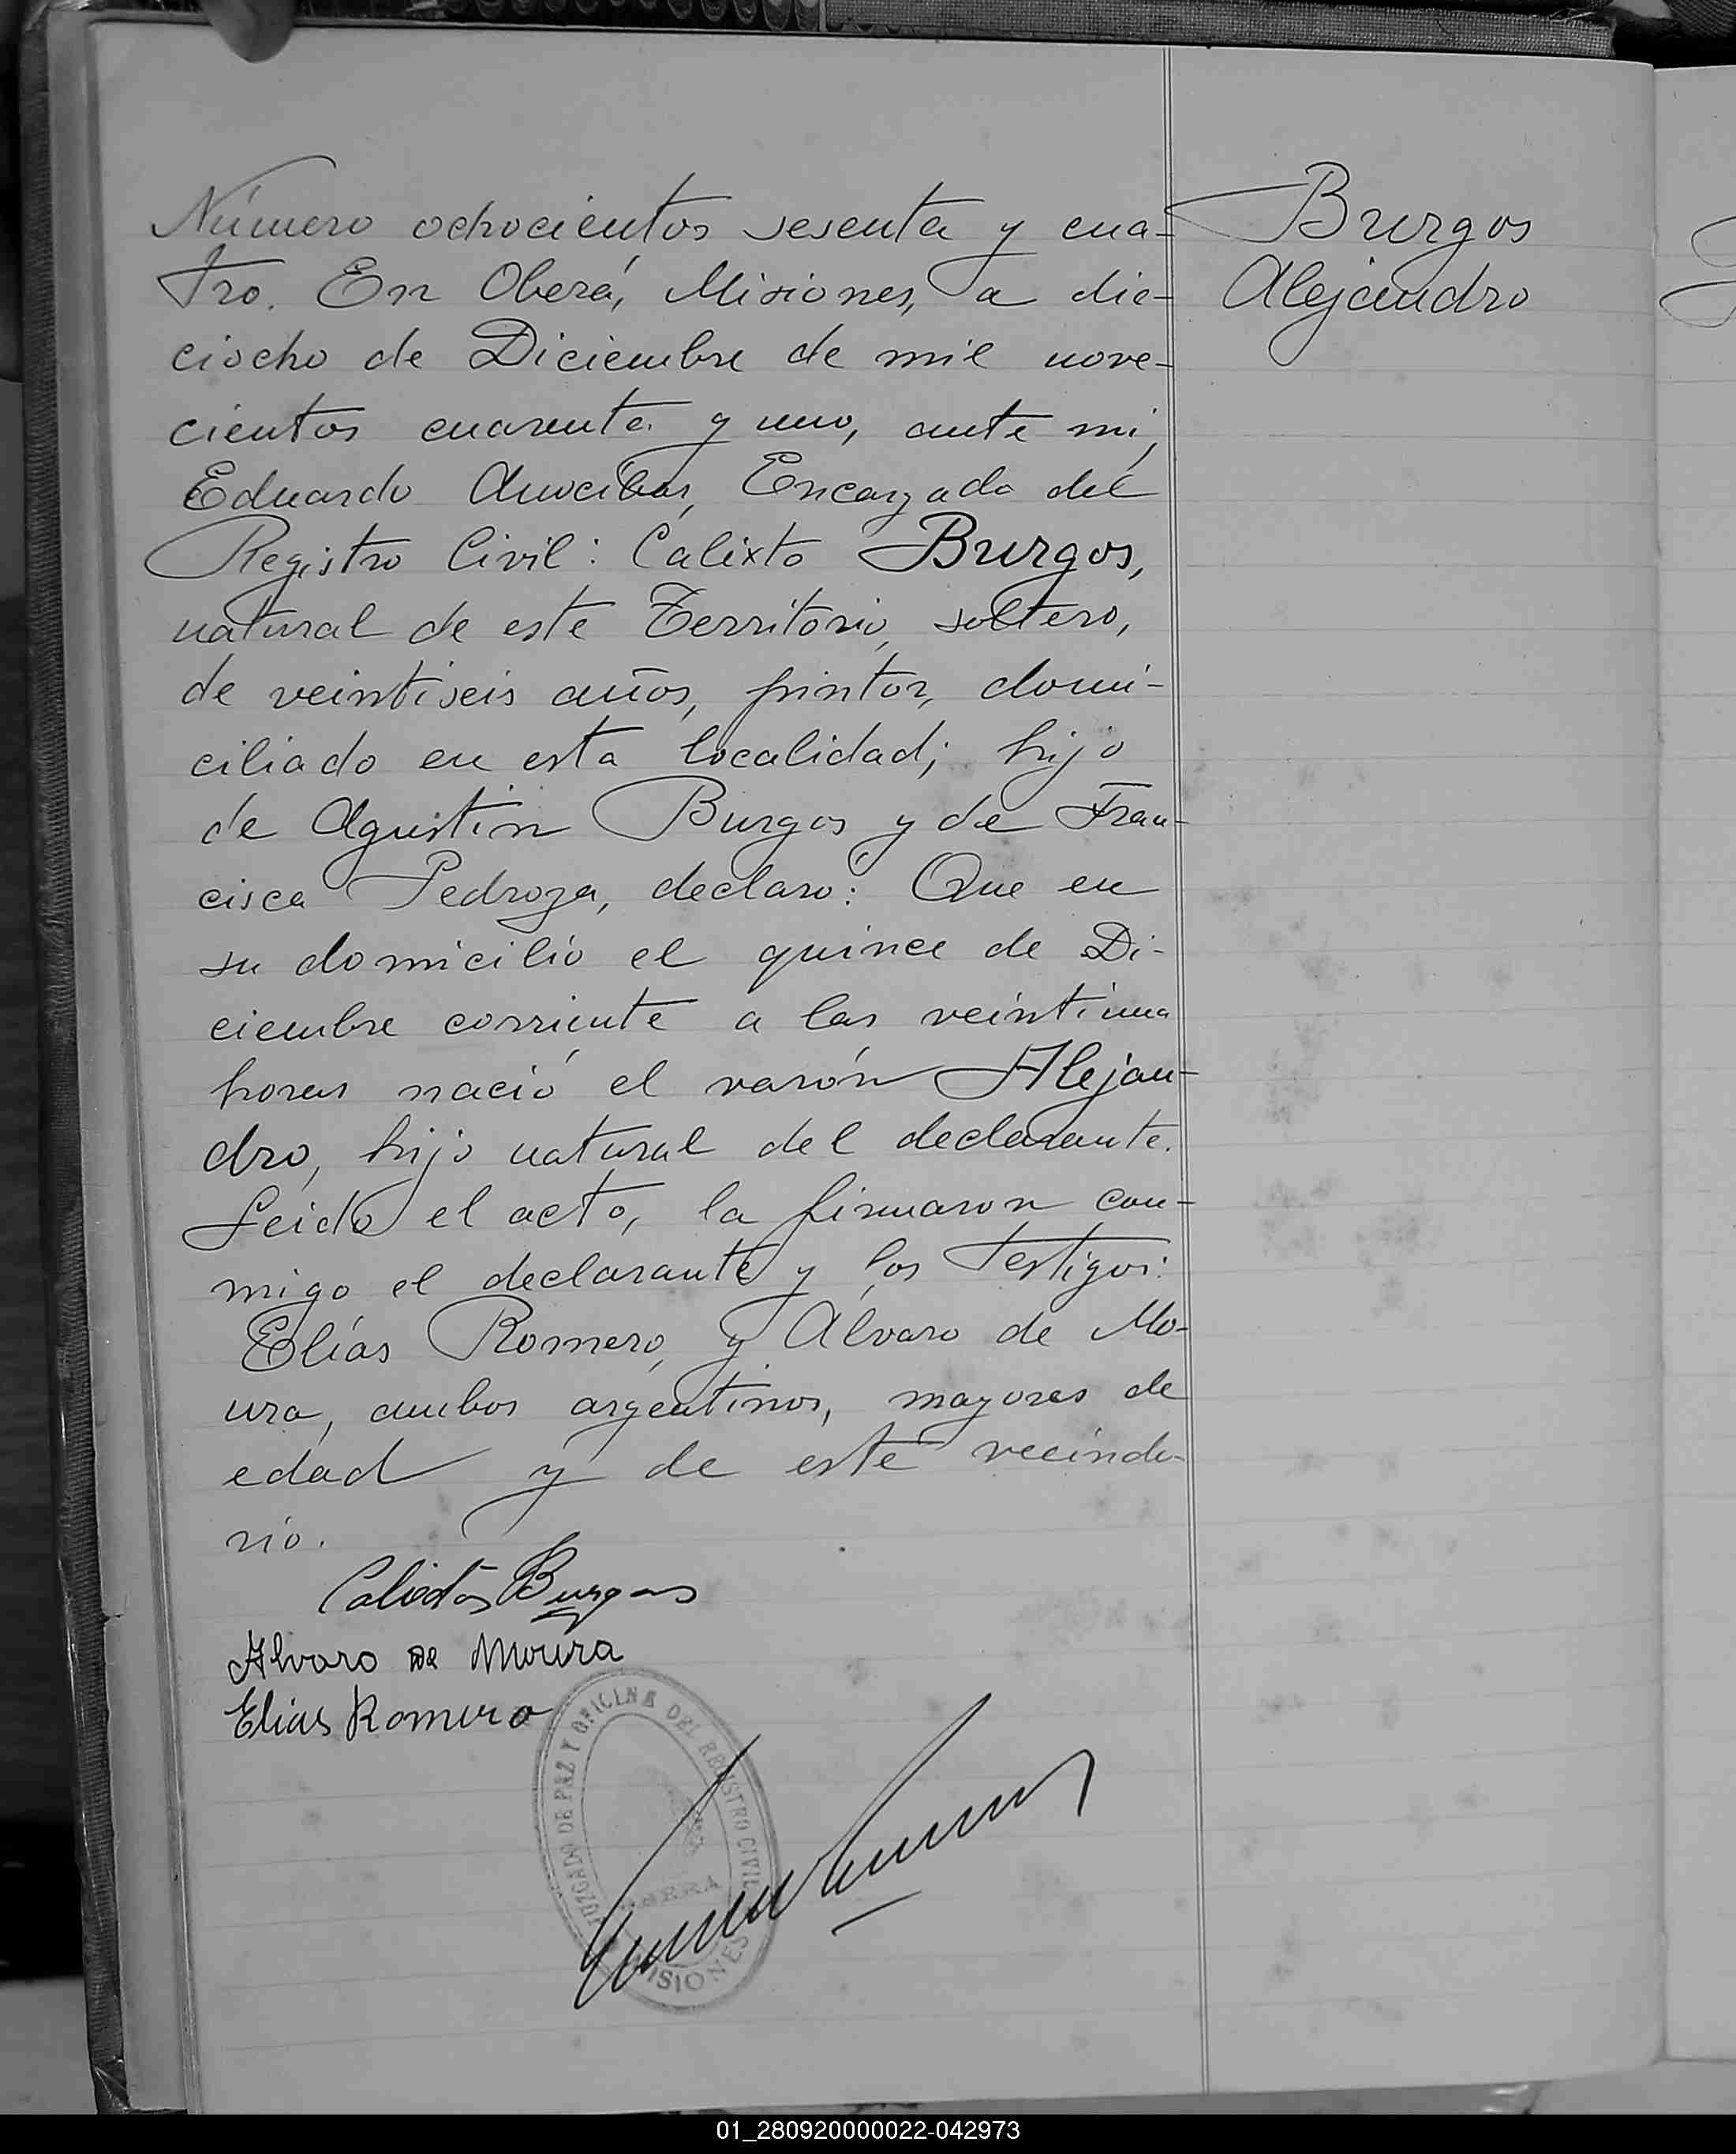 Número ochocientos sesenta y cua-
tro. En Oberá, Misiones, a die-
ciocho de Diciembre de mil nove-
cientos cuarenta y uno, ante mi,
Eduardo Encargado del
Registro Civil: Calixto Burgos,
natural de este Territorio, soltero,
de veintiseis años, pintor, domi-
ciliado en esta localidad; hijo
de Agustin Burgos y de Fran-
cisca Pedroza, declaro: Que en
su domicilio el quince de Di-
ciembre corriente a las veintiuna
horas nació el varón Alejan-
dro, hijo natural del declarante.
Leido el acto, la firmaron con-
migo el declarante y los testigos:
Elías Romero, y Alvaro de Mo-
ura, ambos argentinos, mayores de
edad y de este vecinda-
rio.
Burgos
Alejandro
Calixto Burgos
Alvaro de Moura
Elias Romero
JUZGADO DE PAZ Y OFICINA DEL REGISTRO CIVIL
OBERA
MISIONES
01_280920000022-042973